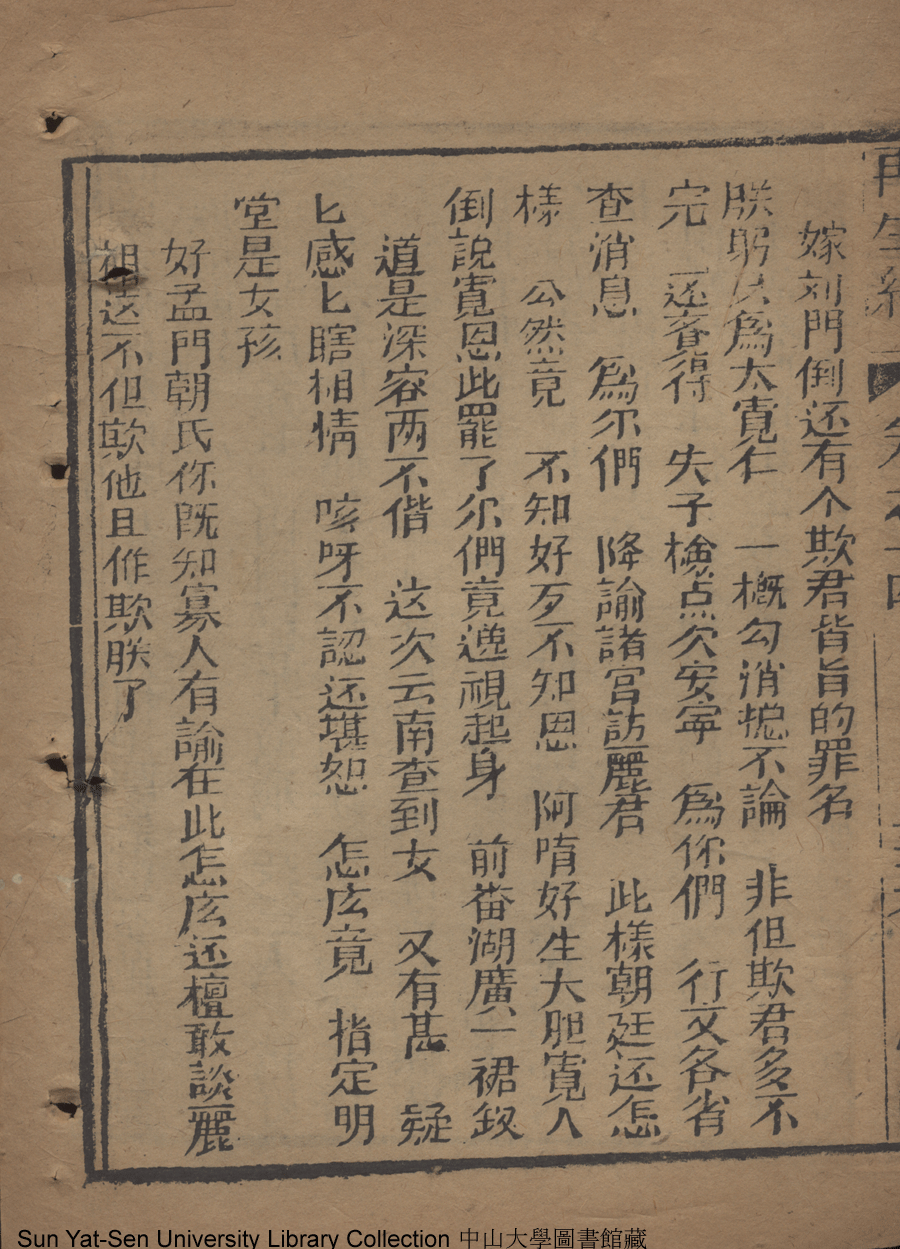 再生緣 卷之十四
嫁刘門倒还有个欺君背旨的罪名
朕躬只為太寬仁 一概勾消揔不論 非但欺君多不
完 还容得 失子檢点欠安寧 為你們 行文各省
查消息 為尔們 降諭諸宫訪麗君 此樣朝廷还怎
樣 公然竟 不知好歹不知恩 阿唷好生大胆寬人
倒說寬恩此罷了尔們竟逰視起身 前畨湖廣一裙釵
道是深容两不偕 这次云南查到女 又有甚 疑
匕感匕瞎相情 咳呀不認还堪恕 怎庅竟 指定明
堂是女孩
好孟門朝氏你既知寡人有諭在此怎庅还檀敢談麗
相这不但欺他且作欺朕了
Sun Yat-Sen University Library Collection 中山大學圖書館藏